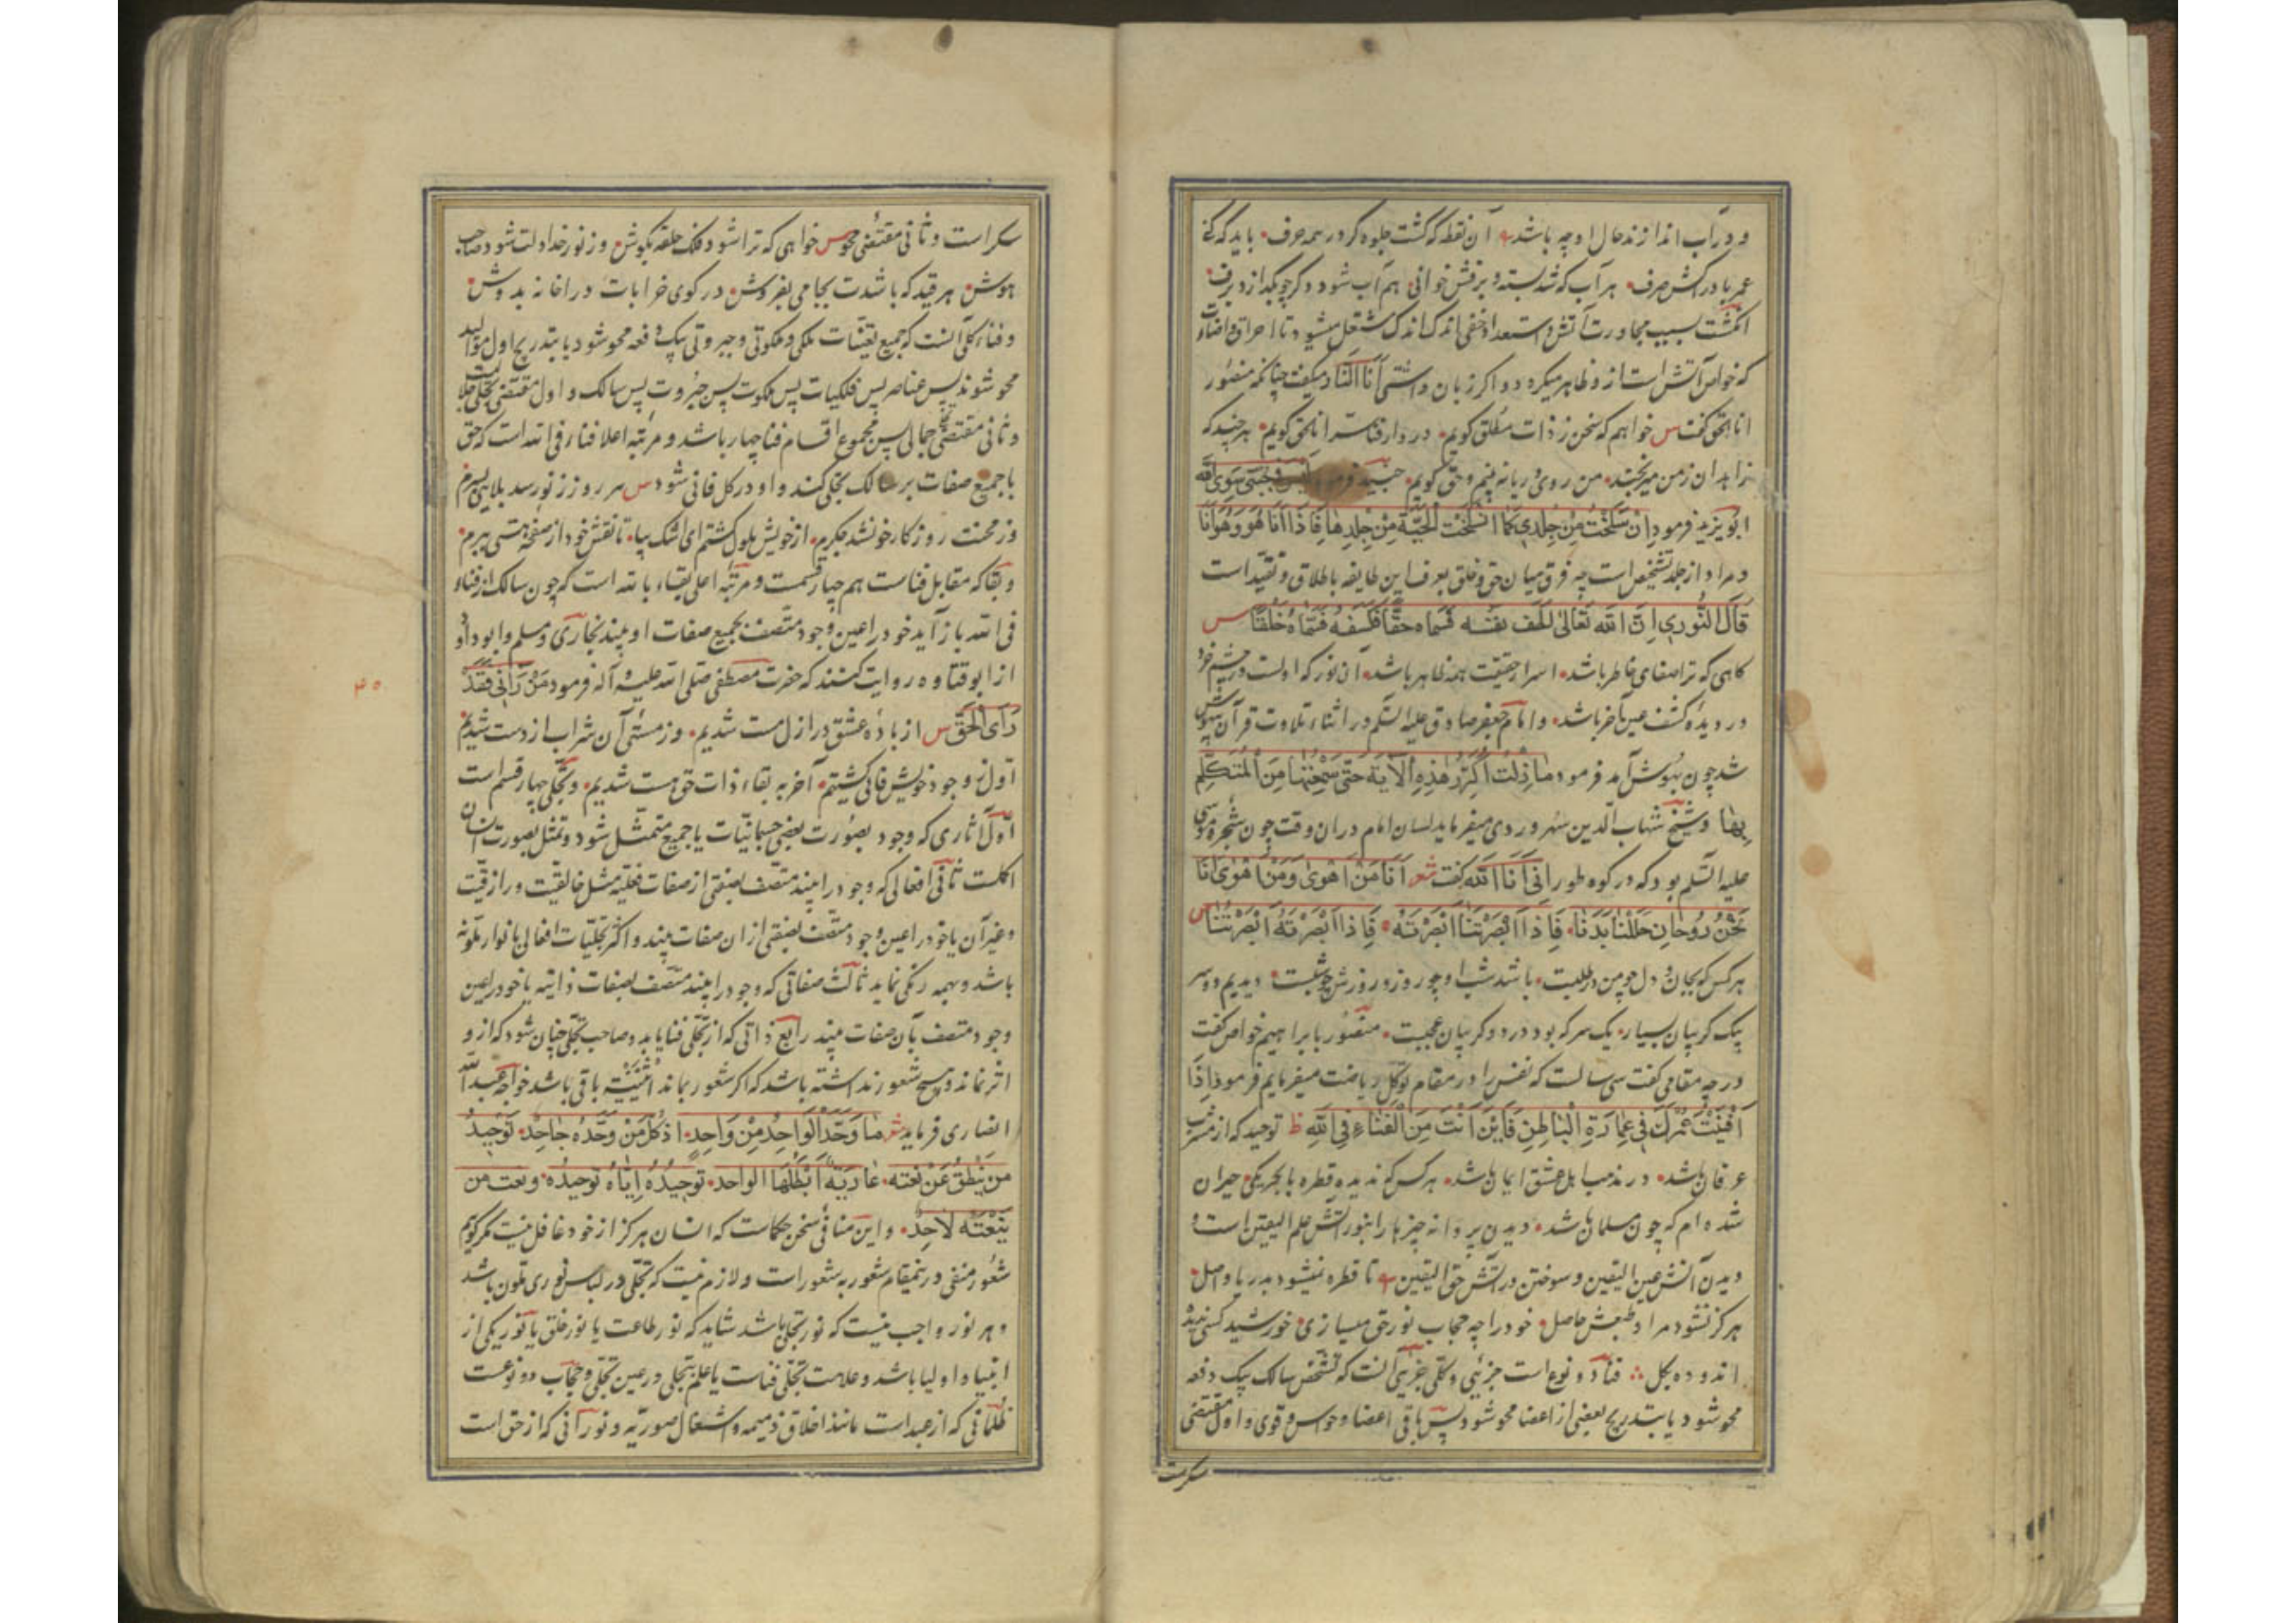 و در آب اندازند حال او چه باشد آن نقطه که گشت جلوه گر در همه حرف باید که کنی
عمر با دراکش صرف هر آب که شد بسته و برفش خوانی هم آب شود دگر چو بگدازد برف
انگشت بسبب مجاورت آتش و استعداد خفی اندک اندک مشتعل میشود تا احراق و اضاءت
که خواص آتش است ازو ظاهر میگردد و اگر زبان داشتی اَنَا النّار میگفت چنانکه منصور
انا الحق گفت س خواهم که سخن ز ذات مطلق گویم در دار فنا سرّ انا الحق گویم هر چند که
زاهدان ز من میرنجند من روی و ریا نه پنم و حق گویم جنید فرمود لیس فی جُبَّتی سِوَی الله
ابویزید فرمود اِنْسَلَخْتُ مِنْ جِلْدِی کَمَا انْسَلَخَتِ الْحَیَّةُ مِنْ جِلْدِهَا فَاِذَا اَنَا هُوَ وَ هُوَ اَنَا
و مراد از جلد تشخّص است چه فرق میان حق و خلق بعرف این طایفه باطلاق و تقیید است
قَالَ النُّورِی اِنَّ الله تَعَالی لَطَّفَ نَفْسَه فَسَمَّاه حَقًّا فَکَثَّفَهُ فَسَمَّاهُ خَلْقًا س
گاهی که ترا صفای خاطر باشد اسرار حقیقت همه ظاهر باشد آن نور که اولست در چشم خرد
در دیده کشف عین آخر باشد و امام جعفر صادق علیه السّلم در اثناء تلاوت قرآن بیهوش
شد چون بهوش آمد فرمود مَا زِلْتُ اُکَرِّرُ هٰذِهِ الْآیَةَ حَتّی سَمِعْتُهَا مِنَ الْمُتَکَلِّمِ
بِهَا و شیخ شهاب الدین سهروردی میفرماید لسان امام دران وقت چون شجره موسی
علیه السّلم بود که در کوه طور اِنّی اَنَا الله گفت شعر اَنَا مَنْ اَهْوی وَ مَنْ اَهْوی اَنَا
نَحْنُ رُوحَانِ حَلَلْنَا بَدَنَا فَاِذَا اَبْصَرْتَنَا اَبْصَرْتَهُ فَاِذَا اَبْصَرْتَهُ اَبْصَرْتَنَا س
هر کس که بجان و دل چو من در طلبست باشد شب او چو روز و روزش چو شبست دیدیم دو سر
بیک گریبان بسیار یک سر که بود در دو گریبان عجبست منصور با براهیم خواص گفت
در چه مقامی گفت سی سالست که نفس را در مقام توکل ریاضت میفرمایم فرمود اِذَا
اَفْنَیْتَ عُمْرَکَ فِی عِمَارَةِ الْبَاطِنِ فَاَیْنَ اَنْتَ مِنَ الْفَنَاءِ فِی اللهِ ظ توحید که از مشرب
عرفان باشد در مذهب اهل عشق ایمان باشد هر کس که ندیده قطره با بحر یکی حیران
شده ام که چون مسلمان باشد دیدن پروانه چیزها را بنور آتش علم الیقین است و
دیدن آتش عین الیقین و سوختن در آتش حق الیقین تا قطره نمیشود بدریا واصل
هرگز نشود مراد طبعش حاصل خود را چه حجاب نور حق میسازی خورشید کسی ندیده
اندوده بکل فنا دو نوع است جزئی و کلّی جزئی آنست که تشخّص سالک بیک دفعه
محو شود یا بتدریج بعضی از اعضا محو شود پس باقی اعضا و حواس و قوی و اول مقتضی
سکرست
سکر است و ثانی مقتضی محو س خواهی که ترا شود فلک حلقه بگوش وز نور خدا دلت شود صاحب
هوش هر قید که باشدت بجامی بفروش در کوی خرابات درا خانه بدوش
و فناء کلّی آنست که جمیع تعیّنات ملکی و ملکوتی و جبروتی بیک دفعه محو شود یا بتدریج اول موالید
محو شوند پس عناصر پس فلکیات پس ملکوت پس جبروت پس سالک و اول مقتضی تجلّی جلالست
و ثانی مقتضی تجلّی جمالی پس مجموع اقسام فنا چهار باشد و مرتبه اعلا فناء فی الله است که حق
با جمیع صفات بر سالک تجلّی کند و او در کل فانی شود س هر روز ز نو رسد بلایی بسرم
وز محنت روزگار خون شد جگرم از خویش ملول گشتم ای اشک بیا تا نقش خود از صفحه هستی ببرم
و بقا که مقابل فناست هم چهار قسمت و مرتبه اعلی بقاء بالله است که چون سالک از فناء
فی الله باز آید خود را عین وجود متّصف بجمیع صفات او بیند بخاری و مسلم و ابو داود
از ابو قتاده روایت کنند که حضرت مصطفی صلّی الله علیه و آله فرمود مَنْ رَاٰنی فَقَدْ
۴۰
رَأَی الْحَقَّ س از باده عشق در ازل مست شدیم وز مستی آن شراب از دست شدیم
اوّل ز وجود خویش فانی گشتیم آخر به بقاء ذات حق هست شدیم و تجلّی چهار قسم است
اوّل آثاری که وجود بصورت بعضی جسمانیّات یا جمیع متمثّل شود و تمثّل بصورت انسان
اکملست ثانی افعالی که وجود را بیند متّصف بصفتی از صفات فعلیّه مثل خالقیّت و رازقیّت
و غیر آن یا خود را عین وجود متّصف بصفتی ازان صفات بیند و اکثر تجلّیات افعالی بانوار ملوّنه
باشد و بهمه رنگی نماید ثالث صفاتی که وجود را بیند متّصف بصفات ذاتیّه یا خود را عین
وجود متّصف بآن صفات بیند رابع ذاتی که از تجلّی فنا یابد و صاحب تجلّی چنان شود که ازو
اثر نماند و هیچ شعور نداشته باشد که اگر شعور بماند اثنَیْنیّت باقی باشد خواجه عبدالله
انصاری فرماید شعر مَا وَحَّدَ الْوَاحِدَ مِنْ وَاحِدٍ اِذْ کُلُّ مَنْ وَحَّدَهُ جَاحِدٌ تَوْحِیدُ
مَنْ یَنْطِقُ عَنْ نَعْتِه عَارِیَةٌ اَبْطَلَهَا الواحد تَوْحِیدُهُ اِیَّاهُ تَوْحِیدُهُ وَنَعت من
یَنْعَتُه لَاحِدٌ و این منافی سخن حکماست که انسان هرگز از خود غافل نیست مگر گویم
شعور منفی درینمقام شعور به شعور است و لازم نیست که تجلّی در لباس نوری ملوّن باشد
و هر نور واجب نیست که نور تجلّی باشد شاید که نور طاعت یا نور خلق یا نور یکی از
انبیا و اولیا باشد و علامت تجلّی فناست یا علم بتجلّی در عین تجلّی و حجاب دو نوعست
ظلمانی که از عبد است مانند اخلاق ذمیمه و اشتغال صوریّه و نورانی که از حق است